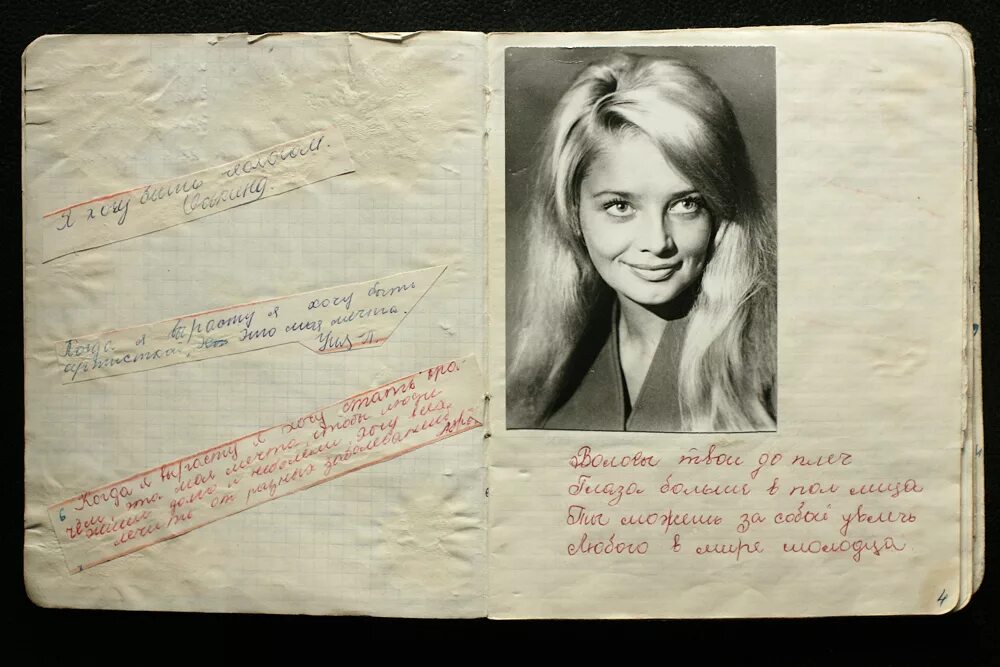 Я хочу быть
Когда я вырасту я хочу быть
артисткой, Это моя мечта.
6
Когда я вырасту я хочу стать вра-
чем, это моя мечта, чтобы люди
жили долго и неболели, хочу всех
лечить от разных заболеваний.
Волосы твои до плеч
Глаза больше в пол лица
Ты можешь за собой увлечь
Любого в мире молодца
4